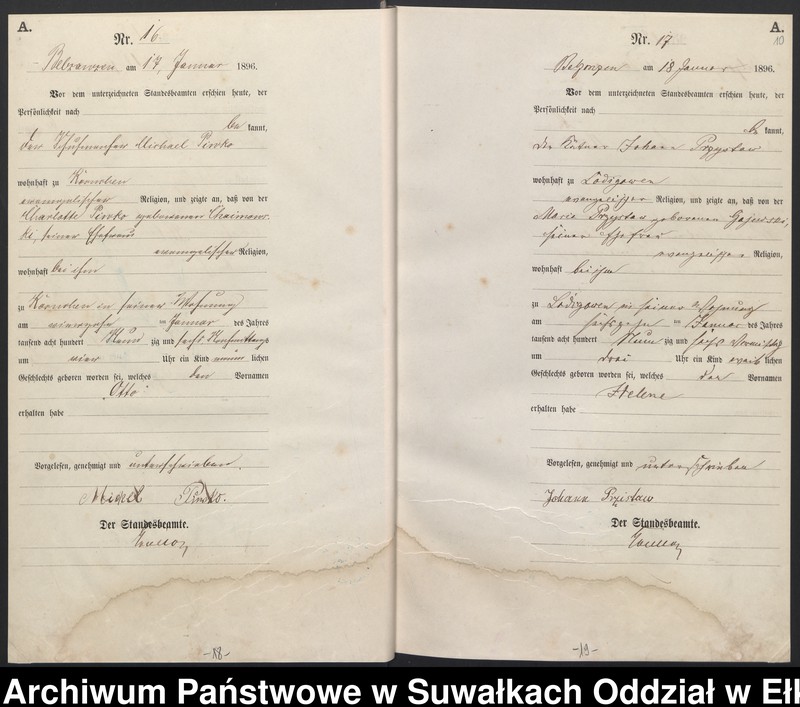 A.
Nr. 16
am 17. Januar 1896.
Vor dem unterzeichneten Standesbeamten erschien heute, der
Persönlichkeit nach
be kannt,
der Michael Piwko
wohnhaft zu
evangelischer Religion, und zeigte an, daß von der
Charlotte Piwko geborenen
ki, seiner Ehefrau
evangelischer Religion,
wohnhaft bei ihm
zu in seiner Wohnung
am vierzehn ten Januar des Jahres
tausend acht hundert Neun zig und sechs Nachmittags
um vier Uhr ein Kind männ lichen
Geschlechts geboren worden sei, welches den Vornamen
Otto
erhalten habe
Vorgelesen, genehmigt und unterschrieben.
Michael Piwko.
Der Standesbeamte.
-18-
A.
10
Nr. 17
am 18 Januar 1896.
Vor dem unterzeichneten Standesbeamten erschien heute, der
Persönlichkeit nach
be kannt,
der Käthner Johann Przystaw
wohnhaft zu Lodigowen
evangelischer Religion, und zeigte an, daß von der
Maria Przystaw geborenen
seiner Ehefrau
evangelischer Religion,
wohnhaft bei ihm
zu Lodigowen in seiner Wohnung
am sechszehn ten Januar des Jahres
tausend acht hundert Neun zig und sechs Vormittag
um drei Uhr ein Kind weib lichen
Geschlechts geboren worden sei, welches der Vornamen
Helene
erhalten habe
Vorgelesen, genehmigt und unterschrieben
Johann Pristaw
Der Standesbeamte.
-19-
Archiwum Państwowe w Suwałkach Oddział w Ełk